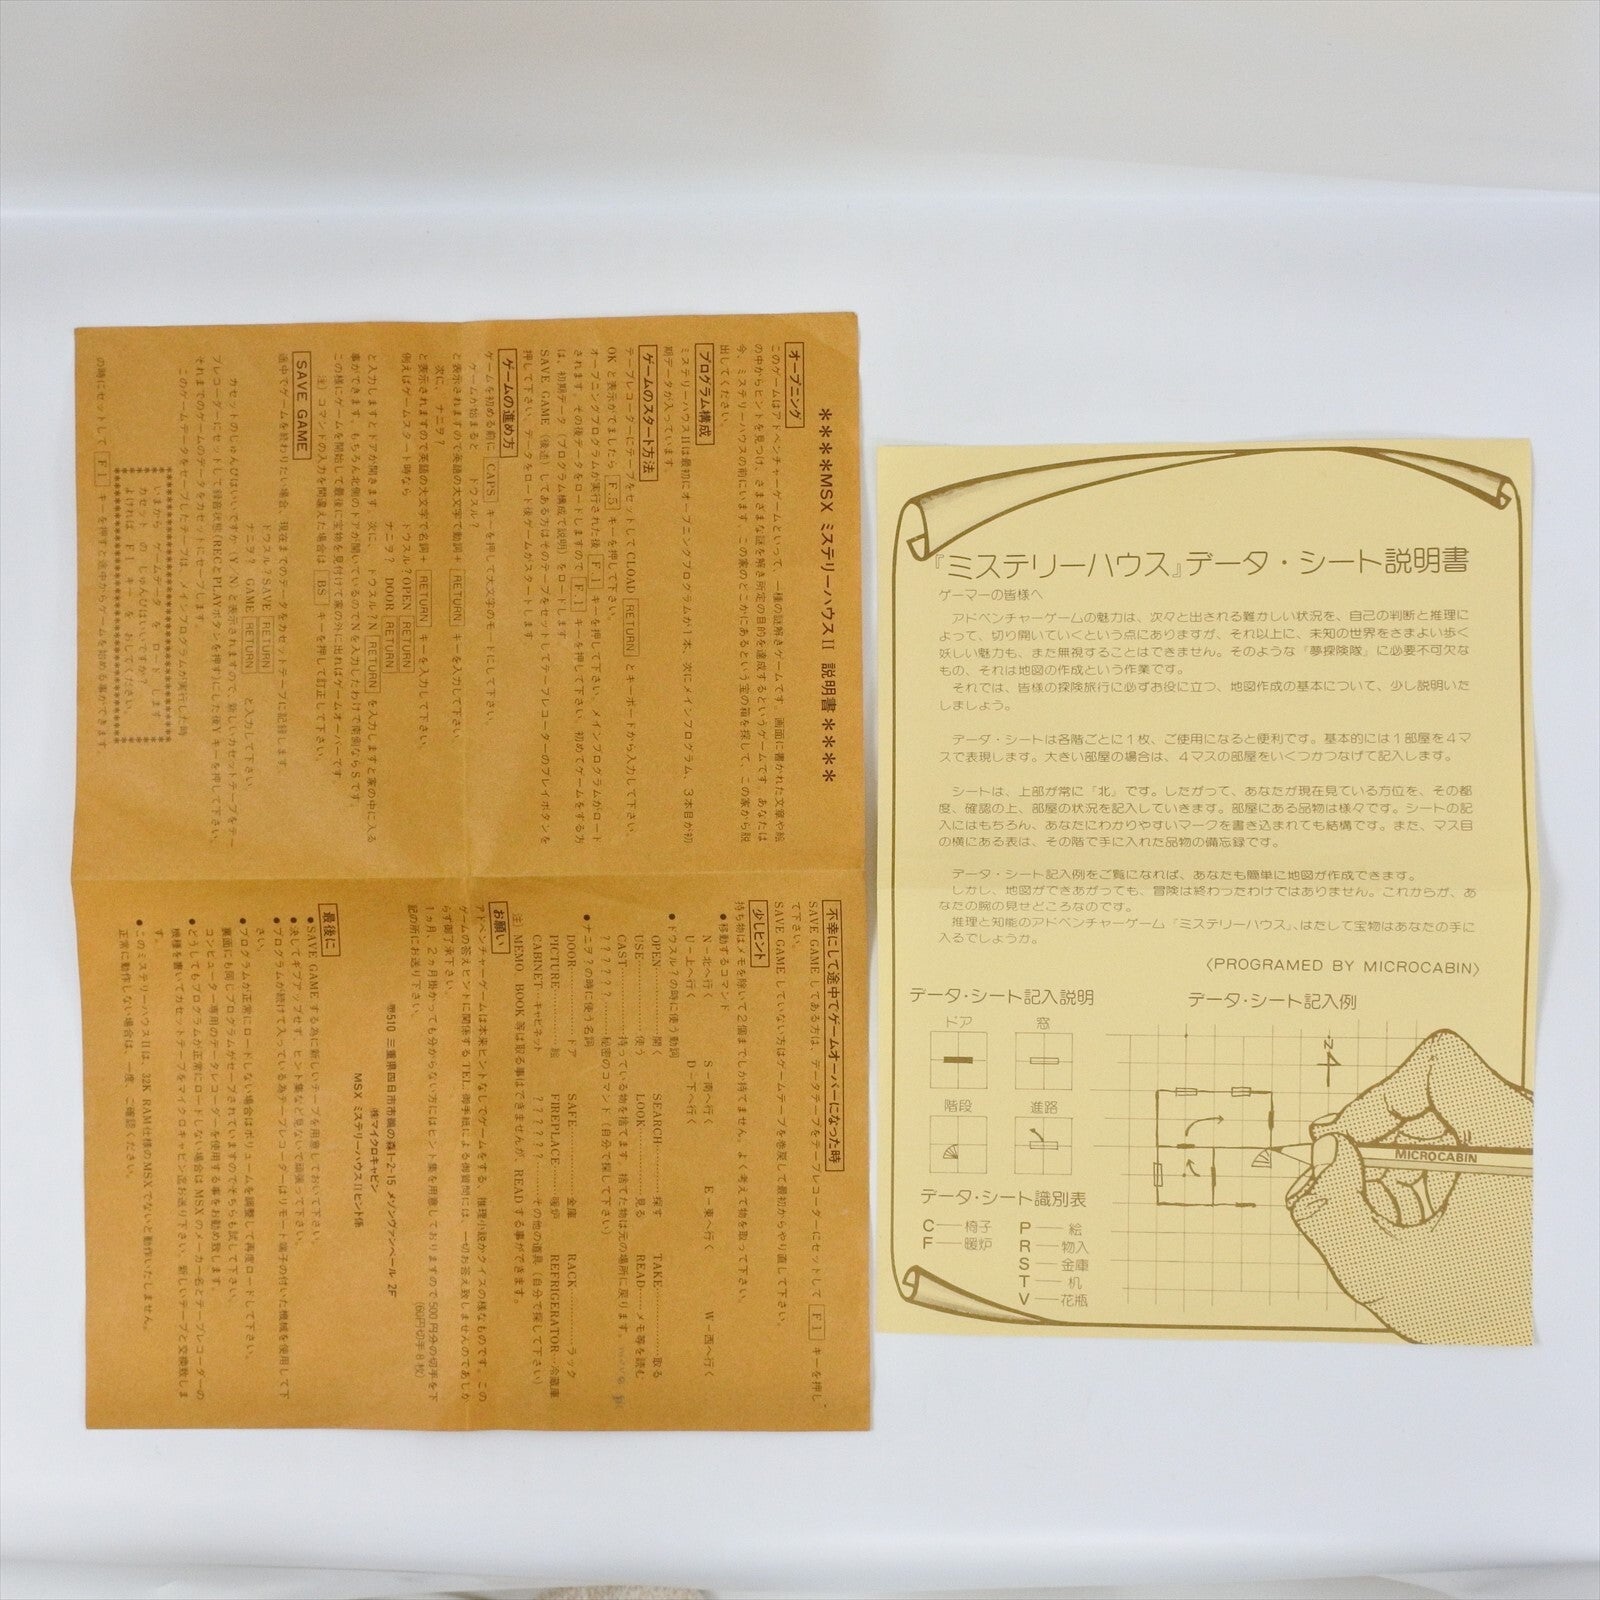 ****MSX ミステリーハウスII 説明書****
オープニング
このゲームはアドベンチャーゲームといって、一種の謎解きゲームです。画面に書かれた文章や絵
の中からヒントを見つけ、さまざまな謎を解き所定の目的を達成するというゲームです。あなたは
今、ミステリーハウスの前にいます。この家のどこかにあるという宝の箱を探して、この家から脱
出してください。
プログラム構成
ミステリーハウスIIは最初にオープニングプログラムが1本、次にメインプログラム、3本目が初
期データが入っています。
ゲームのスタート方法
テープレコーダーにテープをセットして CLOAD RETURN とキーボードから入力して下さい。
OK と表示がでましたら F.5 キーを押して下さい。
オープニングプログラムが実行された後 F.1 キーを押して下さい。メインプログラムがロード
されます。その後データをロードしますので F.1 キーを押して下さい。初めてゲームをする方
は、初期データ(プログラム構成で説明)をロードします。
SAVE GAME (後述)してある方はそのテープをセットしてテープレコーダーのプレイボタンを
押して下さい。データをロード後ゲームがスタートします。
ゲームの進め方
ゲームを初める前に CAPS キーを押して大文字のモードにして下さい。
ゲームが始まると ドウスル?
と表示されますので英語の大文字で動詞+ RETURN キーを入力して下さい。
次に、ナニヲ?
と表示されますので英語の大文字で名詞+ RETURN キーを入力して下さい。
例えばゲームスタート時なら ドウスル? OPEN RETURN
ナニヲ? DOOR RETURN
と入力しますとドアが開きます。次に、ドウスル? N RETURN を入力しますと家の中に入る
事ができます。もちろん北側のドアが開いているのでNを入力したわけで南側ならSです。
この様にゲームを開始して最後に宝物を見付けて家の外に出ればゲームオーバーです。
注)コマンドの入力を間違えた場合は BS キーを押して訂正して下さい。
SAVE GAME
途中でゲームを終わりたい場合、現在までのデータをカセットテープに記録します。
ドウスル? SAVE RETURN
ナニヲ? GAME RETURN と入力して下さい。
カセットのじゅんびはいいですか(Y/N)と表示されますので、新しいカセットテープをテー
プレコーダーにセットして録音状態(RECとPLAYボタンを押す)にした後Yキーを押して下さい。
それまでのゲームのデータをカセットにセーブします。
このゲームデータをセーブしたテープは、メインプログラムが実行した時
いまから ゲームデータ を ロード します
カセット の じゅんびはいいですか?
よければ F1 キー を おしてください。
の時にセットして F1 キーを押すと途中からゲームを始める事ができます。
不幸にして途中でゲームオーバーになった時
SAVE GAMEしてある方は、データテープをテープレコーダーにセットして F1 キーを押し
て下さい。
SAVE GAMEしていない方はゲームテープを巻戻して最初からやり直して下さい。
少しヒント
持ち物はメモを除いて2個までしか持てません。よく考えて物を取って下さい。
●移動するコマンド
N−北へ行く S−南へ行く E−東へ行く W−西へ行く
U−上へ行く D−下へ行く
●ドウスル?の時に使う動詞
OPEN…………開く SEARCH………探す TAKE…………取る
USE…………使う LOOK…………見る READ……メモ等を読む
CAST…………持っている物を捨てます。捨てた物は元の場所に戻ります。
?????……秘密のコマンド(自分で探して下さい)
●ナニヲ?の時に使う名詞
DOOR…………ドア SAFE…………金庫 RACK…………ラック
PICTURE………絵 FIREPLACE……暖炉 REFRIGERATOR…冷蔵庫
CABINET…キャビネット ?????………その他の道具(自分で探して下さい)
注)MEMO、BOOK等は取る事はできませんが、READする事ができます。
お願い
アドベンチャーゲームは本来ヒントなしでゲームをする、推理小説かクイズの様なものです。この
ゲームの答えヒントに関係するTEL、御手紙による御質問には、一切お答え致しませんのであしか
らず御了承下さい。
1カ月、2カ月掛かっても分からない方にはヒント集を用意しておりますので500円分の切手を下
記の所にお送り下さい。 (60円切手8枚)
〒510 三重県四日市市鵜の森1-2-15 メゾンヴァンベール 2F
㈱マイクロキャビン
MSX ミステリーハウスIIヒント係
最後に
●SAVE GAMEする為に新しいテープを用意しておいて下さい。
●決してギブアップせず、ヒント集など見ないで頑張って下さい。
●プログラムが続けて入っている為テープレコーダーはリモート端子の付いた機械を使用して下
さい。
●プログラムが正常にロードしない場合はボリュームを調整して再度ロードして下さい。
裏面にも同じプログラムがセーブされていますのでそちらも試して下さい。
コンピューター専用のデータレコーダーを使用する事をお勧め致します。
●どうしてもプログラムが正常にロードしない場合はMSXのメーカー名とテープレコーダーの
機種を書いてカセットテープをマイクロキャビン迄お送り下さい。新しいテープと交換致しま
す。
●このミステリーハウスIIは、32K RAM仕様のMSXでないと動作いたしません。
正常に動作しない場合は、一度、ご確認ください。
『ミステリーハウス』データ・シート説明書
ゲーマーの皆様へ
アドベンチャーゲームの魅力は、次々と出される難かしい状況を、自己の判断と推理に
よって、切り開いていくという点にありますが、それ以上に、未知の世界をさまよい歩く
妖しい魅力も、また無視することはできません。そのような『夢探険隊』に必要不可欠な
もの、それは地図の作成という作業です。
それでは、皆様の探険旅行に必ずお役に立つ、地図作成の基本について、少し説明いた
しましょう。
データ・シートは各階ごとに1枚、ご使用になると便利です。基本的には1部屋を4マ
スで表現します。大きい部屋の場合は、4マスの部屋をいくつかつなげて記入します。
シートは、上部が常に「北」です。したがって、あなたが現在見ている方位を、その都
度、確認の上、部屋の状況を記入していきます。部屋にある品物は様々です。シートの記
入にはもちろん、あなたにわかりやすいマークを書き込まれても結構です。また、マス目
の横にある表は、その階で手に入れた品物の備忘録です。
データ・シート記入例をご覧になれば、あなたも簡単に地図が作成できます。
しかし、地図ができあがっても、冒険は終わったわけではありません。これからが、あ
なたの腕の見せどころなのです。
推理と知能のアドベンチャーゲーム『ミステリーハウス』、はたして宝物はあなたの手に
入るでしょうか。
〈PROGRAMED BY MICROCABIN〉
データ・シート記入説明
ドア 窓
階段 進路
データ・シート識別表
C──椅子 P──絵
F──暖炉 R──物入
S──金庫
T──机
V──花瓶
データ・シート記入例
N
MICROCABIN